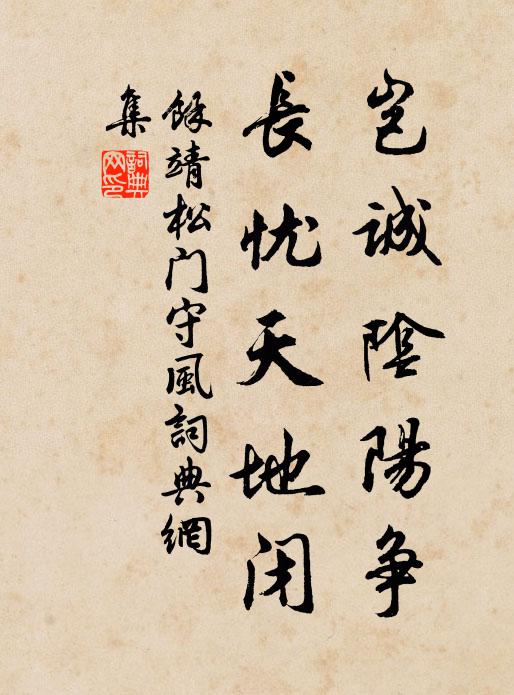 岂诚陰陽争
長忧天地闭
餘靖松门守風詞典網
集
詞典網印